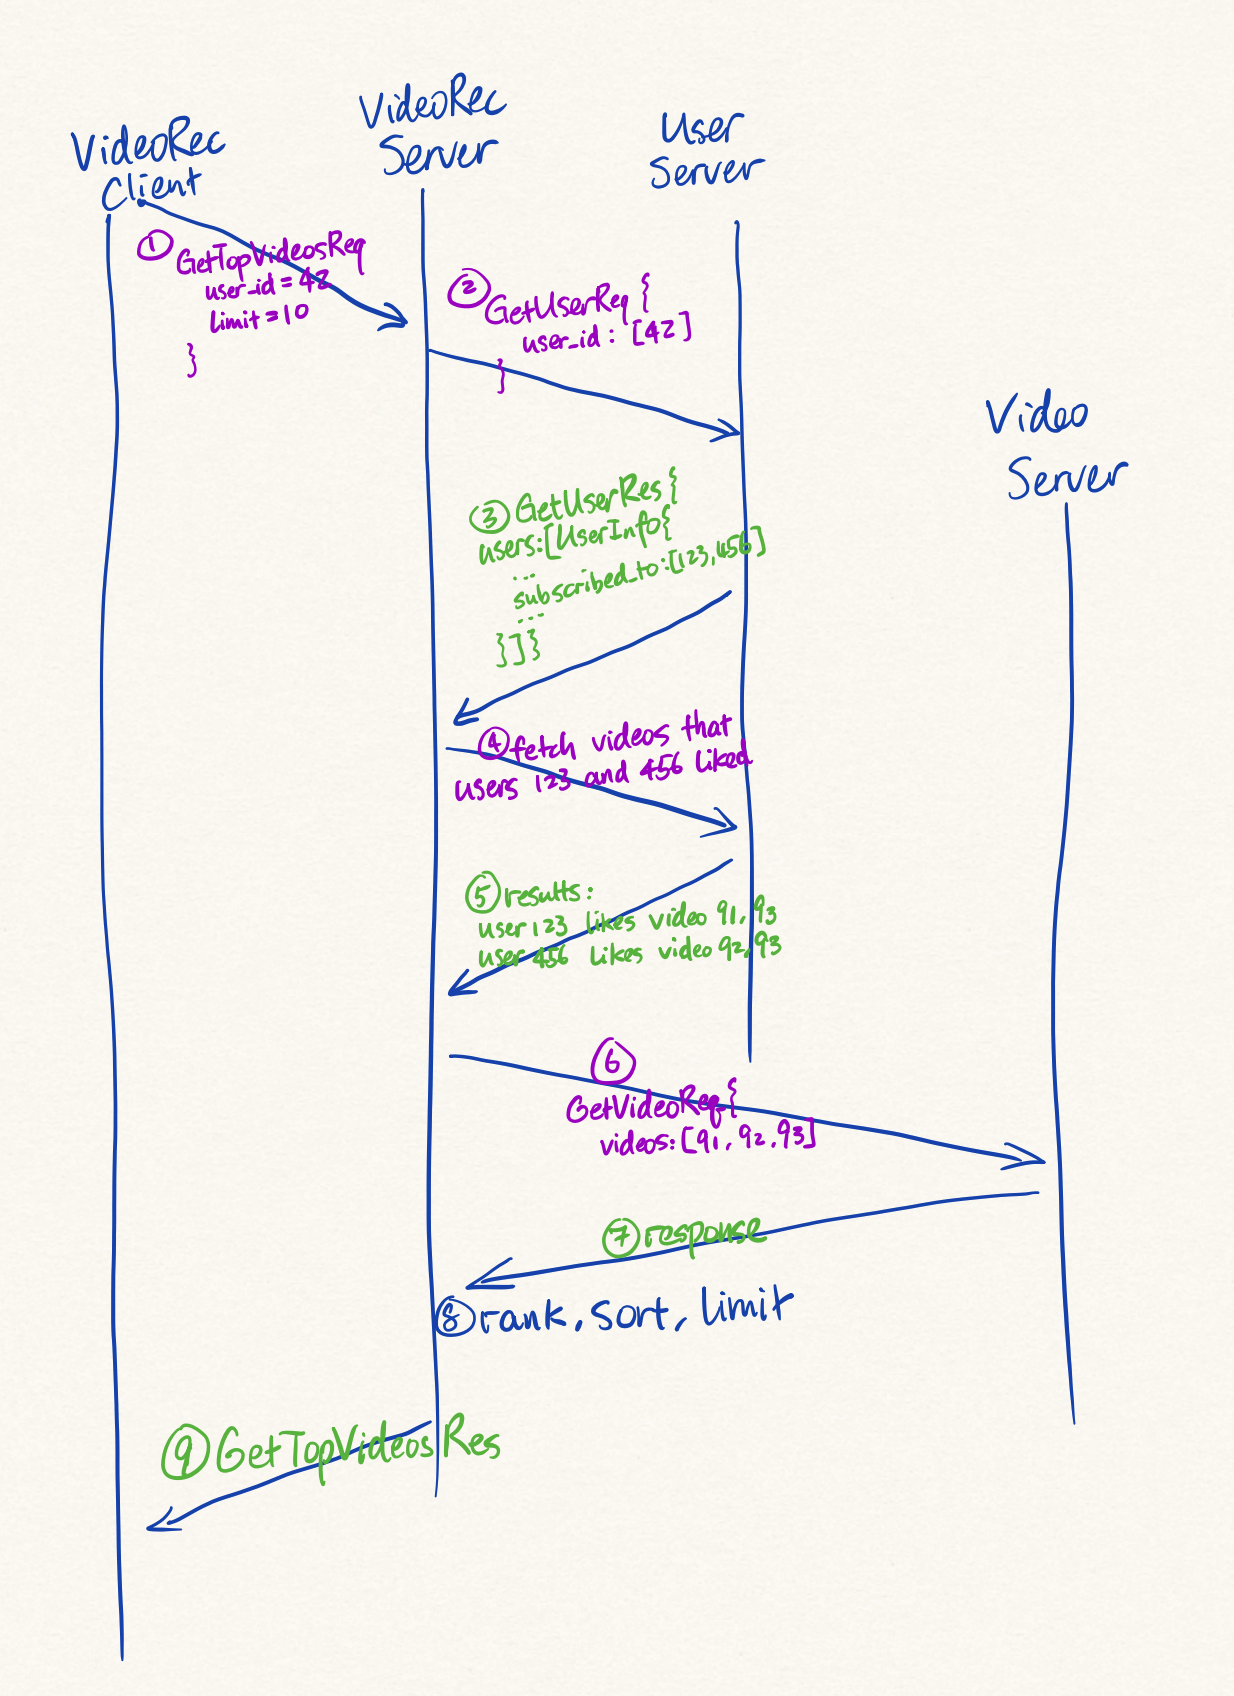 VideoRec
Client
VideoRec
Server
User
Server
Video
Server
① GetTopVideosReq
user_id = 42
limit = 10
}
② GetUserReq {
user_id : [42]
}
③ GetUserRes {
users:[UserInfo{
...
subscribed_to:[123,456]
...
}]}
④ fetch videos that
users 123 and 456 liked
⑤ results:
user 123 likes video 91, 93
user 456 likes video 92, 93
⑥
GetVideoReq{
videos:[91, 92, 93]
⑦ response
⑧ rank, sort, limit
⑨ GetTopVideosRes